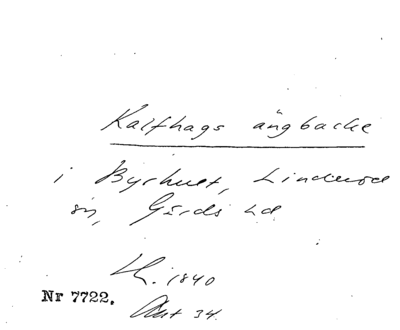 Kalfhags ängbacke
i Byrhult, Linderöd
sn, Gärds hd
1840
Nr 7722.
34.